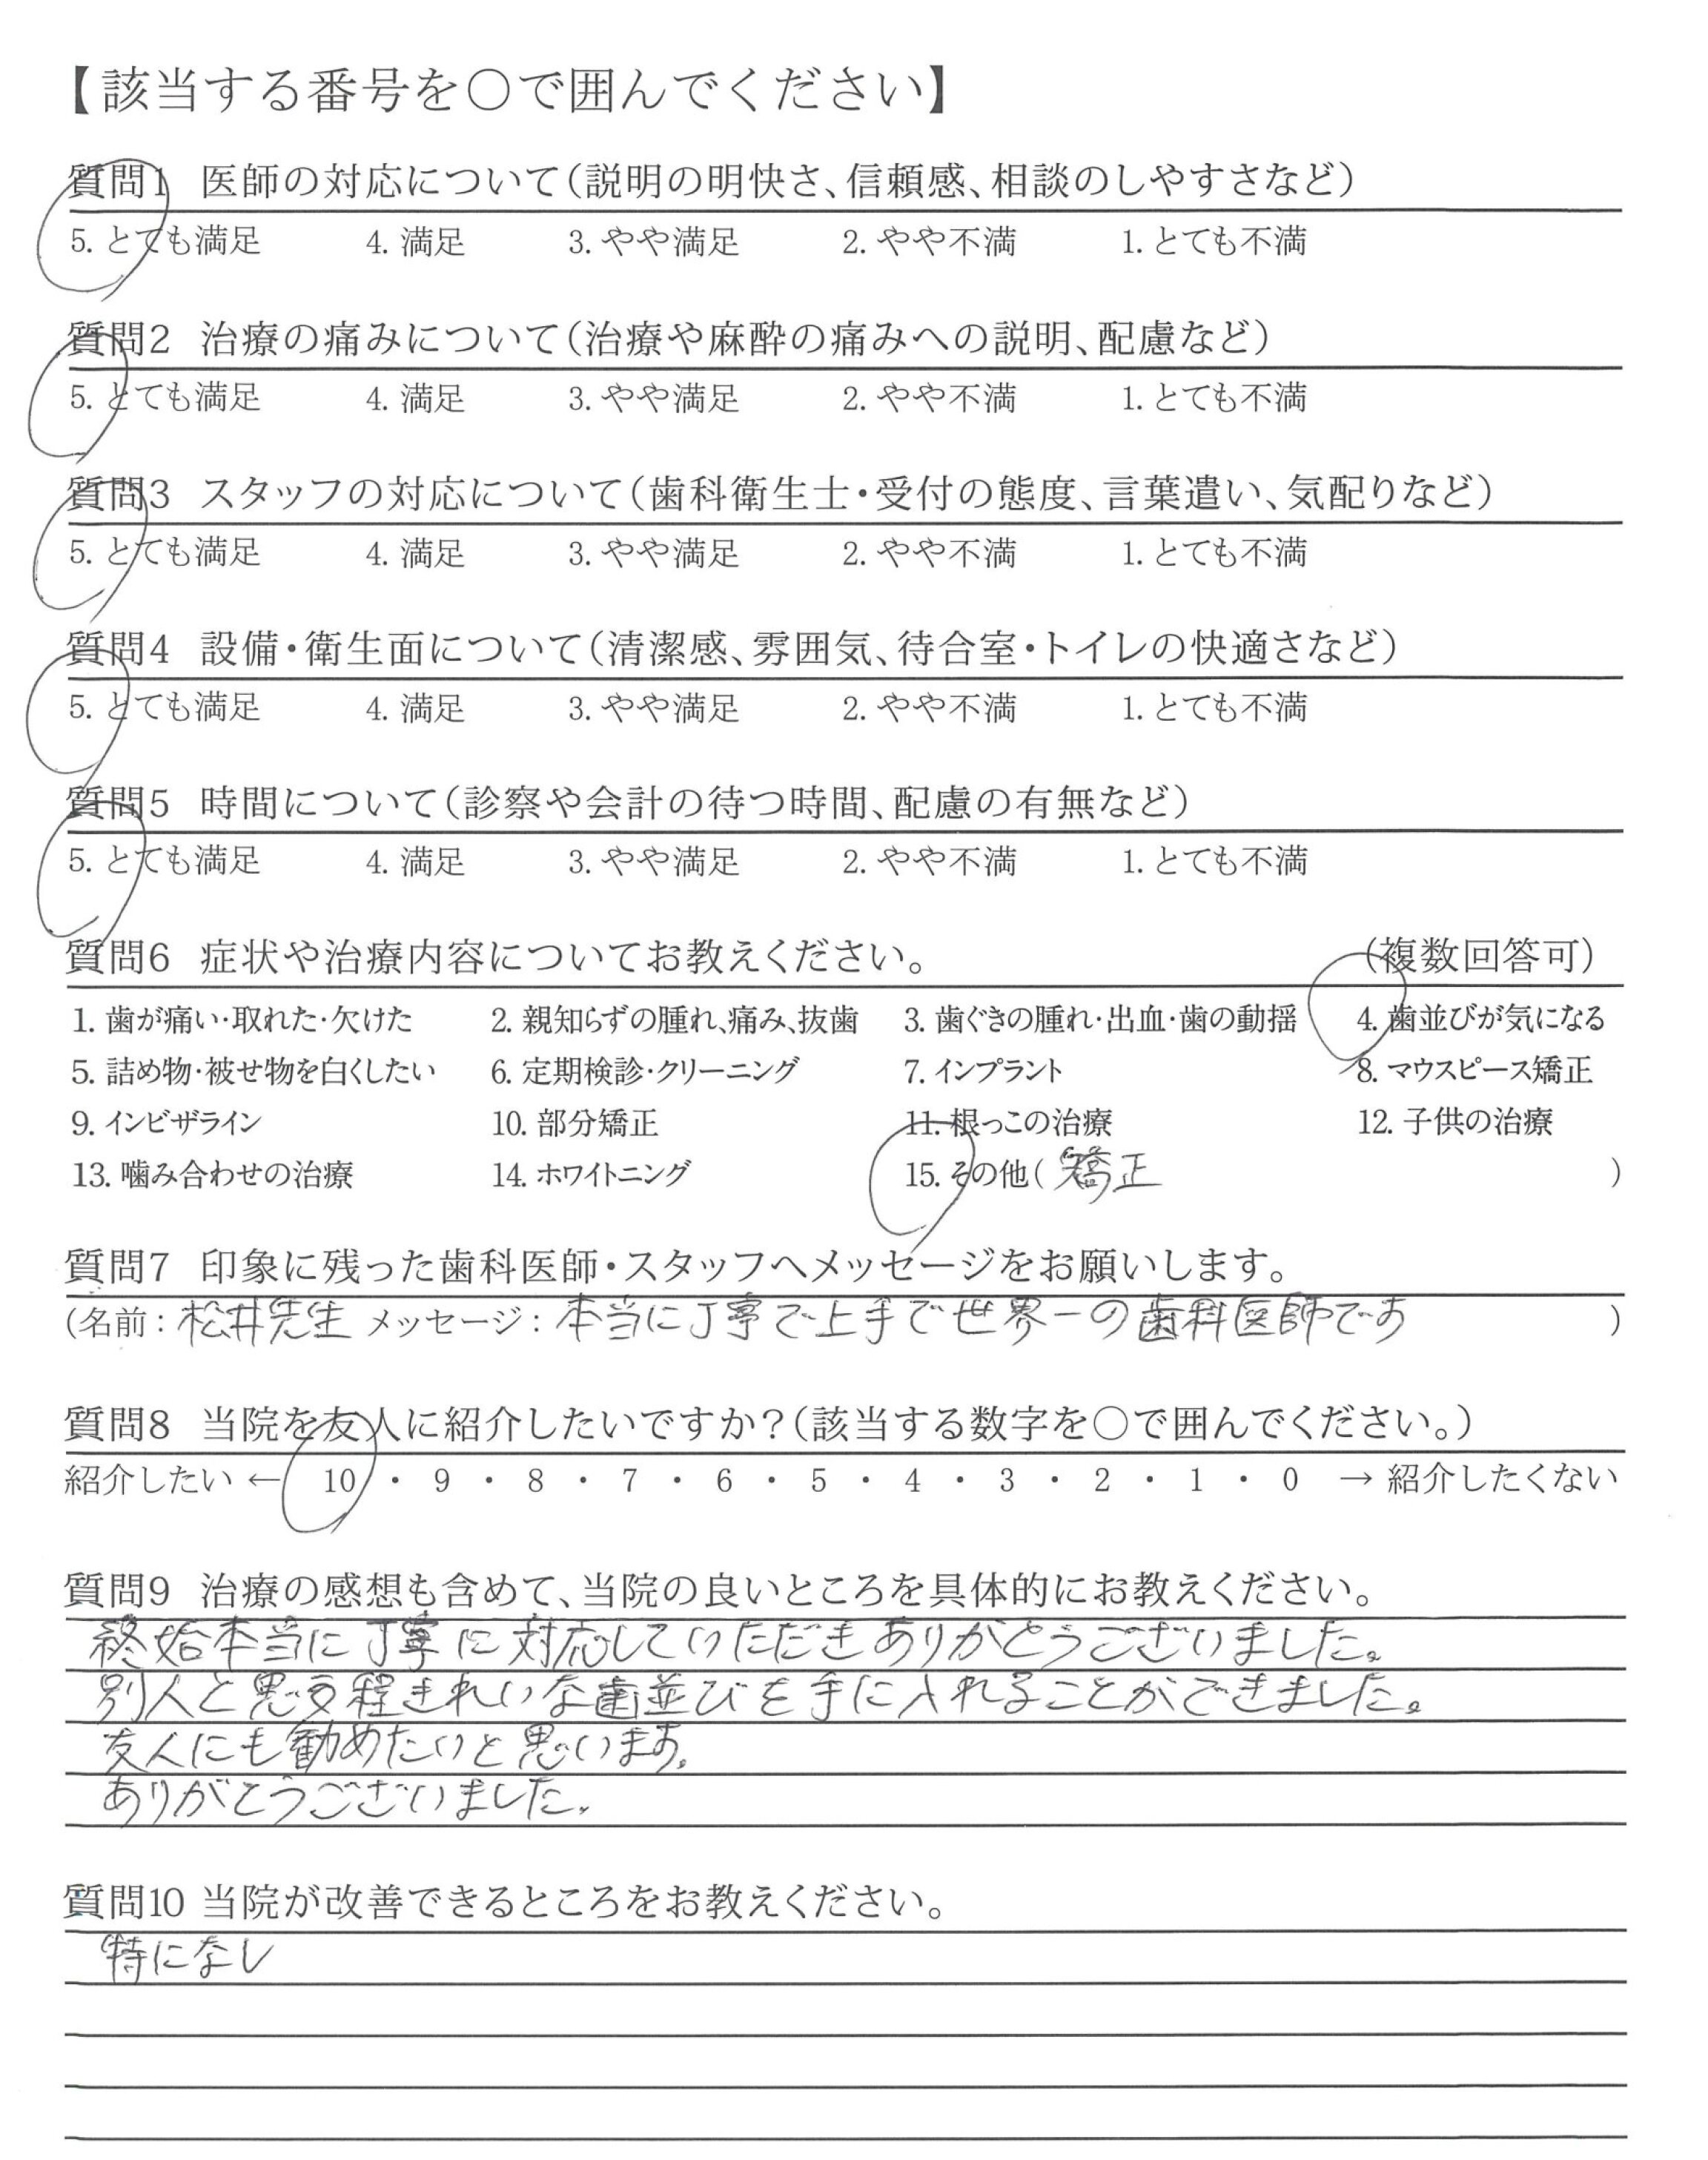 【該当する番号を〇で囲んでください】
質問1 医師の対応について(説明の明快さ、信頼感、相談のしやすさなど)
5. とても満足 4. 満足 3. やや満足 2. やや不満 1. とても不満
質問2 治療の痛みについて(治療や麻酔の痛みへの説明、配慮など)
5. とても満足 4. 満足 3. やや満足 2. やや不満 1. とても不満
質問3 スタッフの対応について(歯科衛生士・受付の態度、言葉遣い、気配りなど)
5. とても満足 4. 満足 3. やや満足 2. やや不満 1. とても不満
質問4 設備・衛生面について(清潔感、雰囲気、待合室・トイレの快適さなど)
5. とても満足 4. 満足 3. やや満足 2. やや不満 1. とても不満
質問5 時間について(診察や会計の待つ時間、配慮の有無など)
5. とても満足 4. 満足 3. やや満足 2. やや不満 1. とても不満
質問6 症状や治療内容についてお教えください。 (複数回答可)
1. 歯が痛い・取れた・欠けた 2. 親知らずの腫れ、痛み、抜歯 3. 歯ぐきの腫れ・出血・歯の動揺 4. 歯並びが気になる
5. 詰め物・被せ物を白くしたい 6. 定期検診・クリーニング 7. インプラント 8. マウスピース矯正
9. インビザライン 10. 部分矯正 11. 根っこの治療 12. 子供の治療
13. 噛み合わせの治療 14. ホワイトニング 15. その他( 矯正 )
質問7 印象に残った歯科医師・スタッフへメッセージをお願いします。
(名前: 松井先生 メッセージ: 本当に丁寧で上手で世界一の歯科医師です )
質問8 当院を友人に紹介したいですか?(該当する数字を〇で囲んでください。)
紹介したい ← 10 ・ 9 ・ 8 ・ 7 ・ 6 ・ 5 ・ 4 ・ 3 ・ 2 ・ 1 ・ 0 → 紹介したくない
質問9 治療の感想も含めて、当院の良いところを具体的にお教えください。
終始本当に丁寧に対応していただきありがとうございました。
別人と思う程きれいな歯並びを手に入れることができました。
友人にも勧めたいと思います。
ありがとうございました。
質問10 当院が改善できるところをお教えください。
特になし